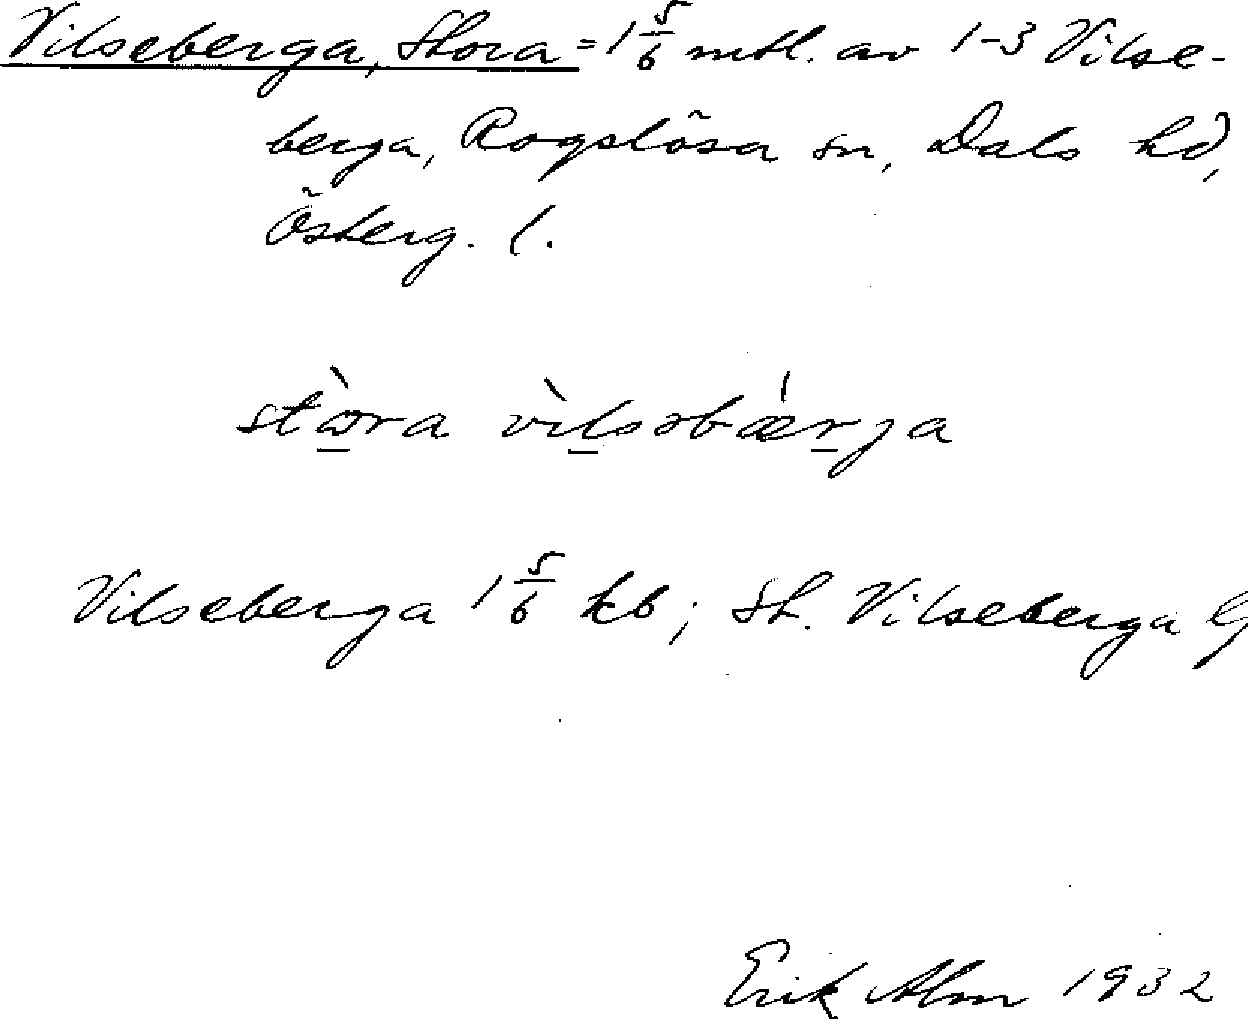 Vilseberga, Stora = 1 5/6 mtl. av 1-3 Vilse-
berga, Rogslösa sn, Dals hd,
Österg. l.
stòra vìlsəbǽrja
Vilseberga 1 5/6 kb; St. Vilseberga G
Erik Alm 1932